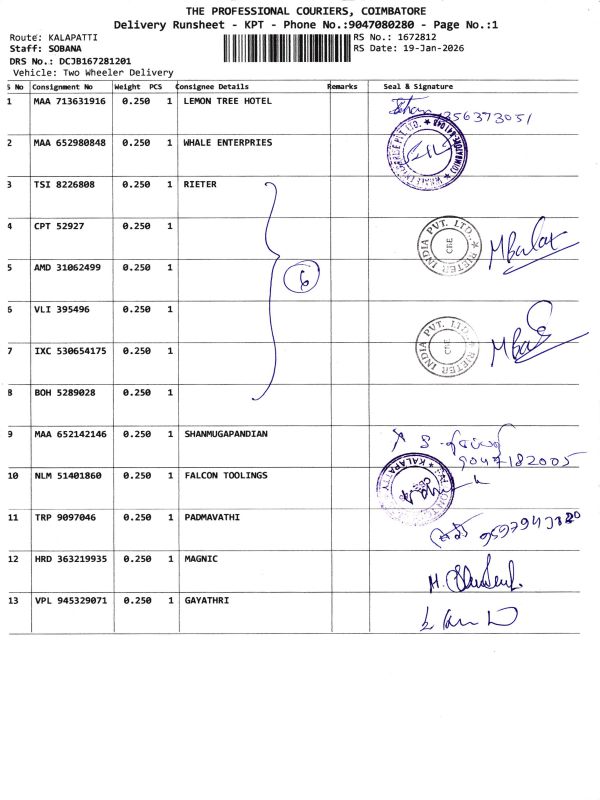 THE PROFESSIONAL COURIERS, COIMBATORE
Delivery Runsheet - KPT - Phone No.:9047080280 - Page No.:1
Route: KALAPATTI
Staff: SOBANA
DRS No.: DCJB167281201
Vehicle: Two Wheeler Delivery
RS No.: 1672812
RS Date: 19-Jan-2026
S No Consignment No Weight PCS Consignee Details Remarks Seal & Signature
1 MAA 713631916 0.250 1 LEMON TREE HOTEL
2 MAA 652980848 0.250 1 WHALE ENTERPRIES
3 TSI 8226808 0.250 1 RIETER
4 CPT 52927 0.250 1
5 AMD 31062499 0.250 1
6 VLI 395496 0.250 1
7 IXC 530654175 0.250 1
8 BOH 5289028 0.250 1
6
RIETER INDIA PVT. LTD.
CBE
RIETER INDIA PVT. LTD.
CBE
9 MAA 652142146 0.250 1 SHANMUGAPANDIAN
9047182005
10 NLM 51401860 0.250 1 FALCON TOOLINGS
KALAPATTY
11 TRP 9097046 0.250 1 PADMAVATHI
12 HRD 363219935 0.250 1 MAGNIC
13 VPL 945329071 0.250 1 GAYATHRI